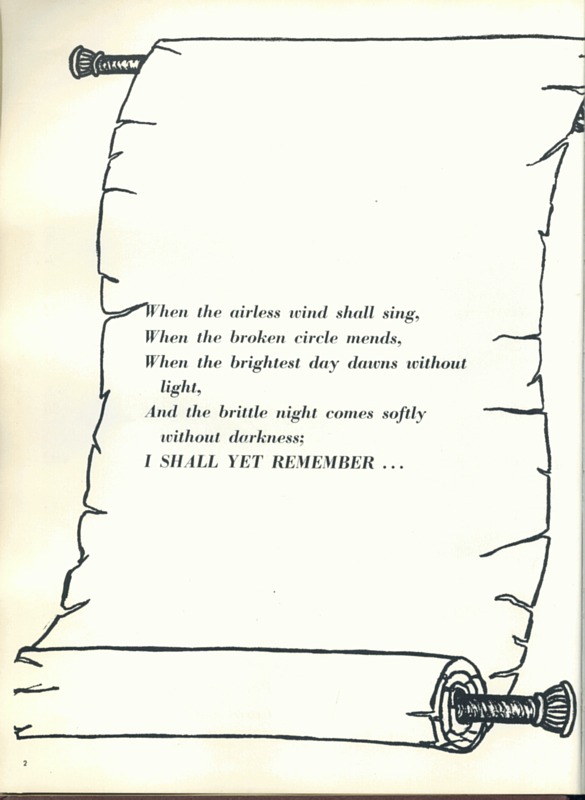 When the airless wind shall sing,
When the broken circle mends,
When the brightest day dawns without
light,
And the brittle night comes softly
without darkness;
I SHALL YET REMEMBER ...
2